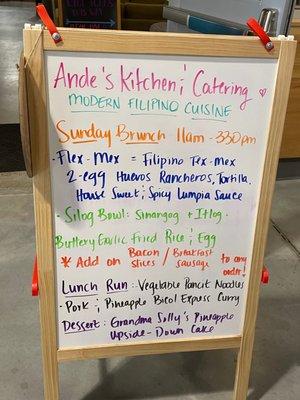 Ande's Kitchen & Catering
MODERN FILIPINO CUISINE
Sunday Brunch 11am - 330pm
• Flex-Mex = Filipino Tex-Mex
2-egg Huevos Rancheros, Tortilla,
House Sweet & Spicy Lumpia Sauce
• Silog Bowl: Sinangag + Itlog.
Buttery Garlic Fried Rice & Egg
* Add on Bacon slices / Breakfast sausage to any order!
Lunch Run: Vegetable Pancit Noodles
• Pork & Pineapple Bicol Express Curry
Dessert: Grandma Solly's Pineapple
Upside-Down Cake